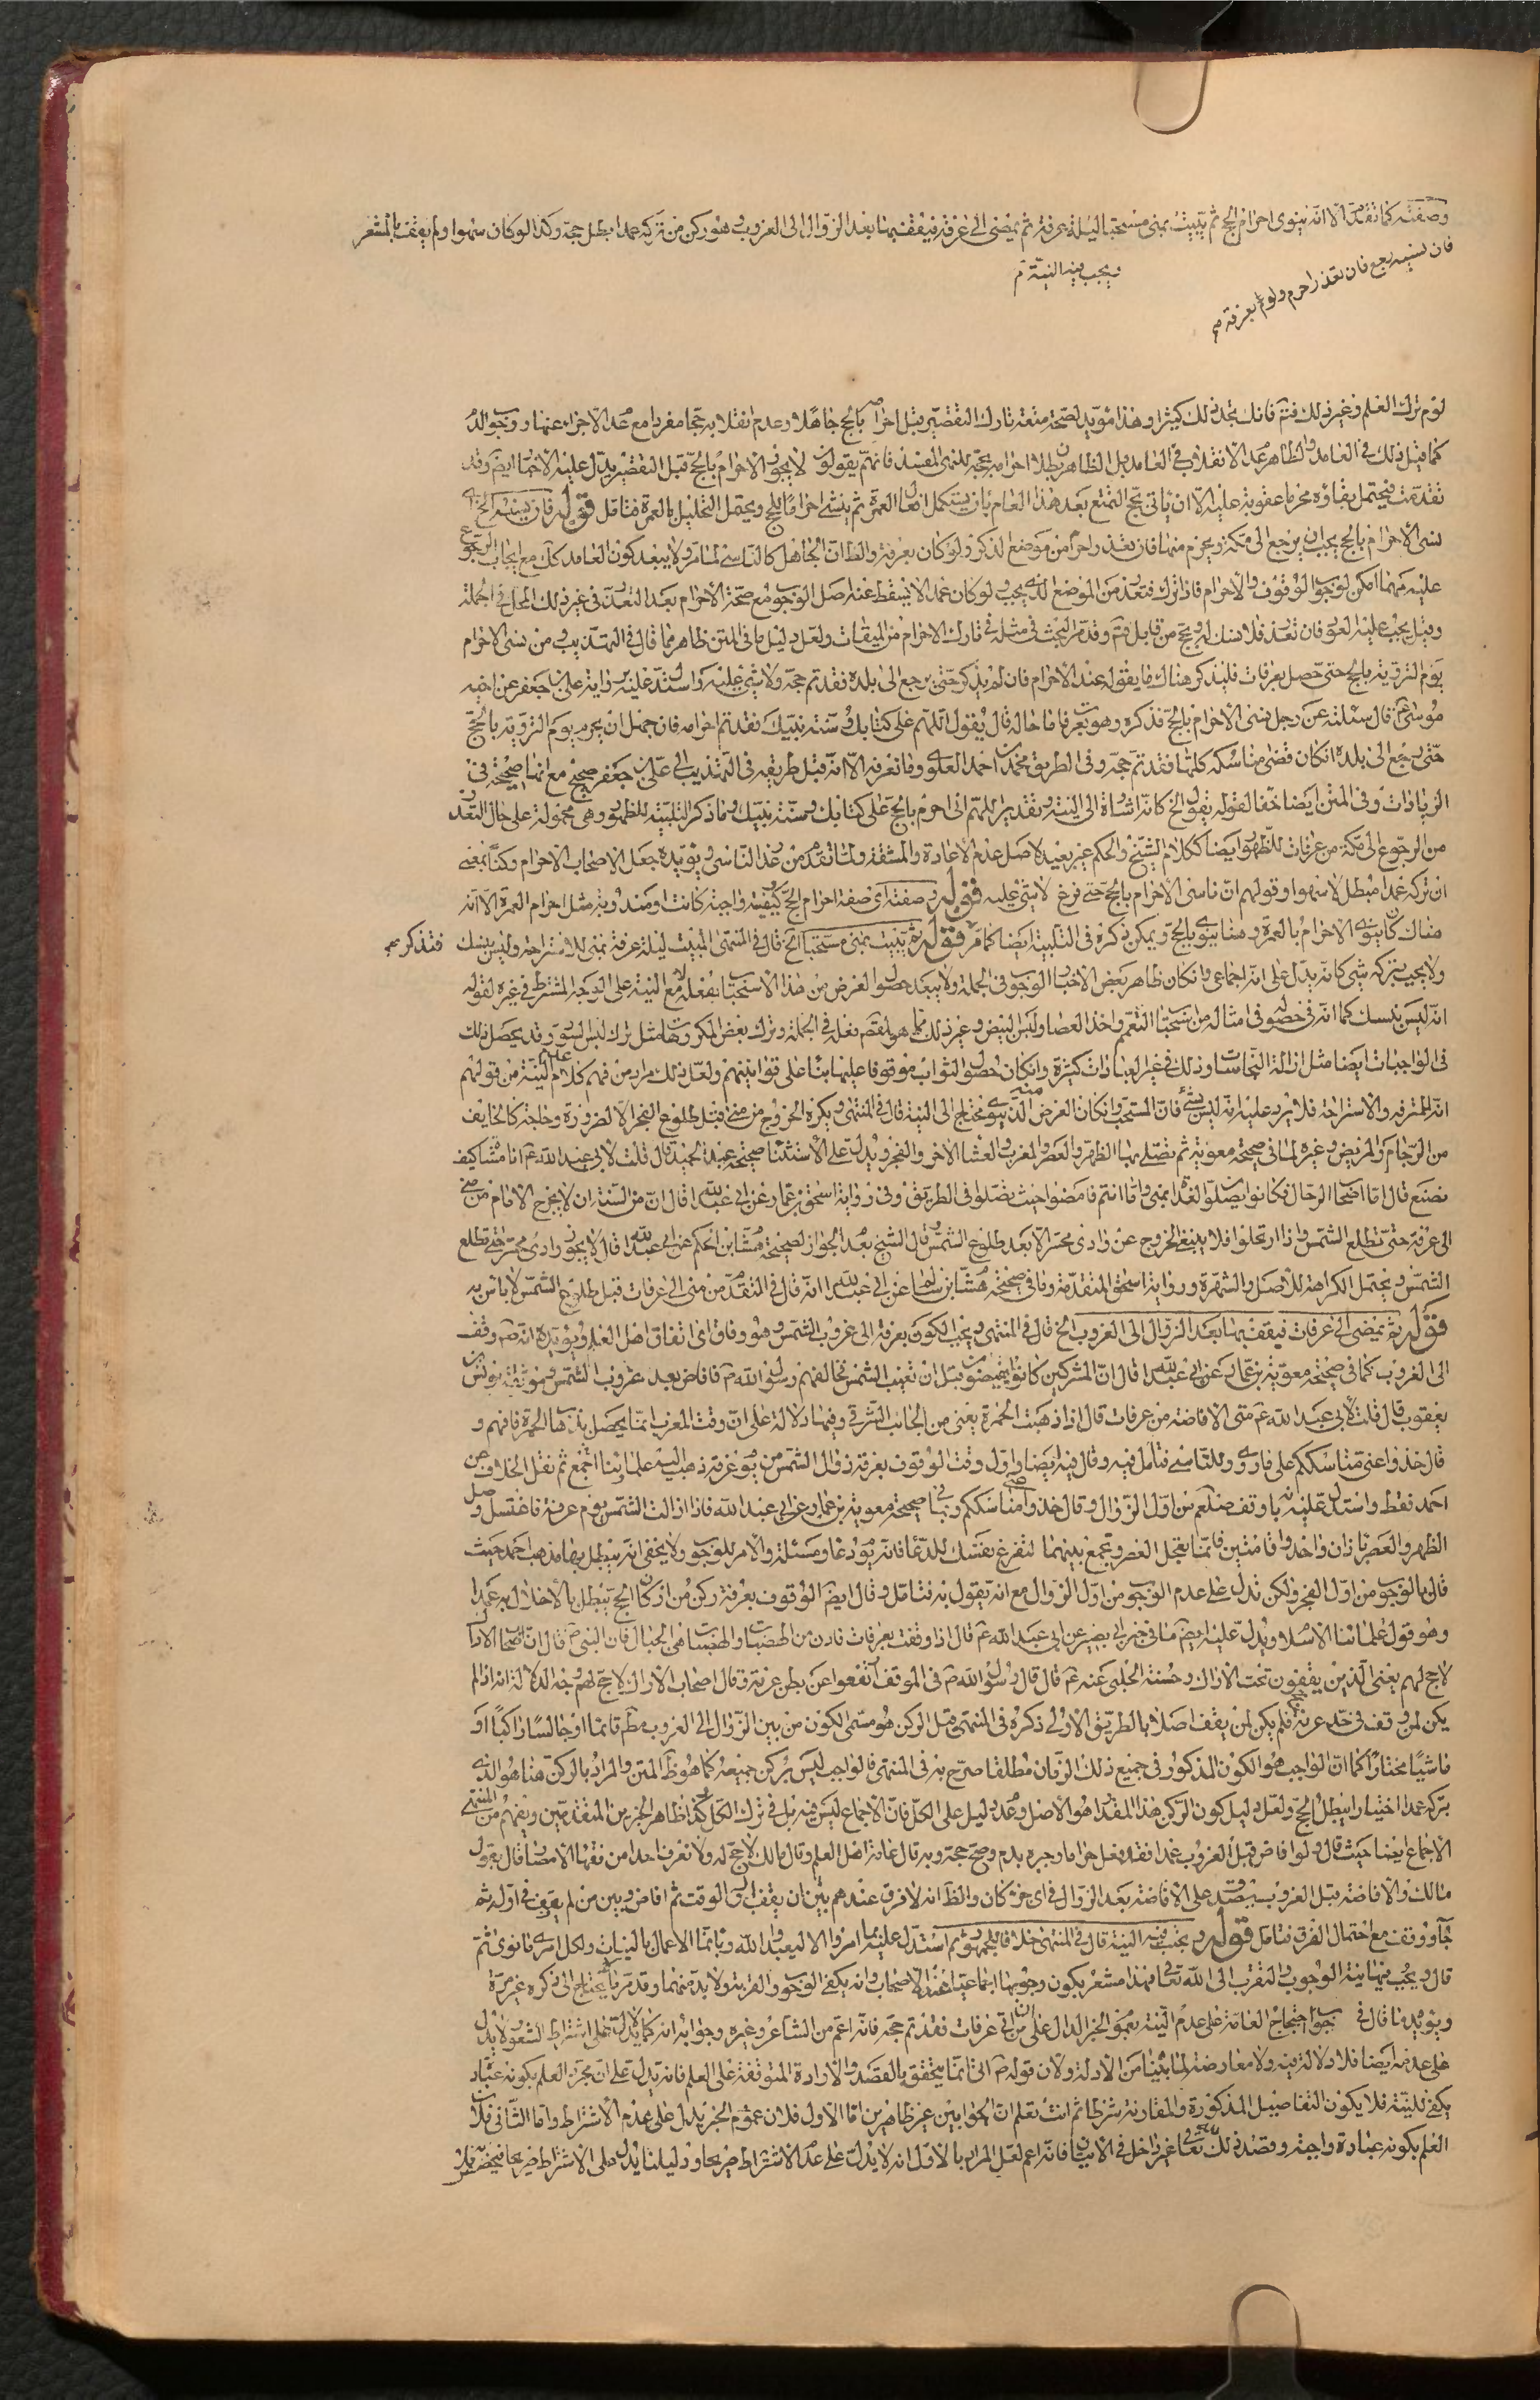 وصفته كما تقدم الا انه ينوى احرام الحج ثم يبيت بمنى مستحبا ليلة عرفة ثم يمضى الى عرفة فيقف بها بعد الزوال الى الغروب وهو ركن من تركه عمدا بطل حجه وكذا لو كان سهوا ولم يقف بالمشعر
فان نسيه رجع فان تعذر احرم ولو بعرفة م
ويجب فيه النية م
لوم ترك العلم وغير ذلك فتم فانك تجد ذلك كثيرا وهذا مؤيد لصحة متعة تارك التقصير قبل احرام بالحج جاهلا وعدم انقلابه حجا مفردا مع عدم الاجزاء عنها ووجوب الدم
كما قيل ذلك فى العامد والظاهر عدم الانقلاب فى العامد بل الظاهر بطلان احرامه بحجه للنهى المفسد فانهم يقولون لا يجوز الاحرام بالحج قبل التقصير يدل عليه الاخبار ايضا وقد
تقدمت فيحتمل بقاؤه محرما عقوبة عليه الا ان ياتى بحج التمتع بعد هذا العام بان يستكمل افعال العمرة ثم ينشئ احراما للحج ويحتمل التحليل بالعمرة فتامل قوله فان نسيه الخ اى
نسى الاحرام بالحج يجب ان يرجع الى مكة ويحرم منها فان تعذر واحرم من موضع الذكر ولو كان بعرفة والظ ان الجاهل كالناسى لما مر ولا يبعد كون العامد كك مع ايجاب الرجوع
عليه مهما امكن لوجوب الوقوف والاحرام فاذا ترك فتعذر من الموضع الذى يجب ولو كان عمدا لا يسقط عنه اصل الوجوب مع صحة الاحرام بعد التعذر فى غير ذلك المحل فى الجملة
وقيل يجب عليه العود فان تعذر فلا نسك له ويحج من قابل فتم وقد مر البحث فى مثله فى تارك الاحرام من الميقات ولعل دليل ما فى المتن ظاهر مما قال فى التهذيب ومن نسى الاحرام
يوم التروية بالحج حتى حصل بعرفات فليذكر هناك ما يقوله عند الاحرام فان لم يذكر حتى يرجع الى بلده فقد تم حجه ولا شئ عليه واستدل عليه برواية على بن جعفر عن اخيه
موسى ع قال سئلته عن رجل نسى الاحرام بالحج فذكره وهو بعرفات ما حاله قال يقول اللهم على كتابك وسنة نبيك فقد تم احرامه فان جهل ان يحرم يوم التروية بالحج
حتى رجع الى بلده ان كان قضى مناسكه كلها فقد تم حجه وفى الطريق محمد بن احمد العلوى وما نعرفه الا انه قيل طريقه فى التهذيب الى على بن جعفر صحيح مع انها صحيحة فى
الزيادات وفى المتن ايضا خفاء لقوله يقول الخ كانه اشارة الى النية وتقديره اللهم انى احرم بالحج على كتابك وسنة نبيك وما ذكر التلبية للظهور وهى محمولة على حال التعذر
من الرجوع الى مكة من عرفات للظهور ايضا ككلام الشيخ والحكم غير بعيد لاصل عدم الاعادة والمشقة ولما تقدم من عذر الناسى ويؤيده جعل الاصحاب الاحرام ركنا بمعنى
ان تركه عمدا مبطل لا سهوا وقولهم ان ناسى الاحرام بالحج حتى فرغ لا شئ عليه قوله وصفته اى صفة احرام الحج كيفيته واجبة كانت او مندوبة مثل احرام العمرة الا انه
هناك كان ينوى الاحرام بالعمرة وهنا ينوى بالحج ويمكن ذكره فى التلبية ايضا كما مر قوله ثم يبيت بمنى مستحبا الخ قال فى المنتهى المبيت ليلة عرفة بمنى للاستراحة وليس بنسك
فتذكر م
ولا يجب بتركه شئ كانه يدل على انه اجماعى وان كان ظاهر بعض الاخبار الوجوب فى الجملة ولا يبعد حصول الغرض من هذا الاستحباب بفعله لا مع النية على الوجه المشترط فى غيره لقوله
انه ليس بنسك كما انه فى حصوله فى امثاله من استحباب التعمم واخذ العصا ولبس البيض وغير ذلك مما هو المقصود فعله فى الجملة وترك بعض المكروهات مثل ترك لبس السود وقد يحصل ذلك
فى الواجبات ايضا مثل ازالة النجاسات وذلك فى غير العبادات كثيرة وان كان حصول الثواب موقوفا عليها بناء على قوانينهم ولعل ذلك مراد من فهم كلام عدم النية من قولهم
انه للترفه والاستراحة فلا يرد عليه انه ليس بشئ فان المستحب وان كان الغرض الدنيوى محتاج الى النية قال فى المنتهى ويكره الخروج من منى قبل طلوع الفجر الا لضرورة وحاجة كالخايف
من الزحام والمريض وغيره لما فى صحيحة معوية ثم تصلى بها الظهر والعصر والمغرب والعشاء الاخر والفجر ويدل على الاستثناء صحيحة عبد الحميد قال قلت لابى عبد الله ع انا مشاة كيف
نصنع قال اما اصحاب الرحال فكانوا يصلون الغداة بمنى واما انتم فامضوا حيث تصلوا فى الطريق وفى رواية اسحق بن عمار عن ابى عبد الله ع قال ان من السنة ان لا يخرج الامام من منى
الى عرفة حتى تطلع الشمس واذا ارتحلوا فلا ينبغى الخروج عن وادى محسر الا بعد طلوع الشمس وقال الشيخ بعدم الجواز لصحيحة هشام بن الحكم عن ابى عبد الله ع قال لا يجوز وادى محسر حتى تطلع
الشمس ويحتمل الكراهة للاصل والشهرة ورواية اسحق المتقدمة وما فى صحيحة هشام بن سالم عن ابى عبد الله ع انه قال فى المتقدم من منى الى عرفات قبل طلوع الشمس لا باس به
قوله ثم يمضى الى عرفات فيقف بها بعد الزوال الى الغروب الخ قال فى المنتهى ويجب الكون بعرفة الى غروب الشمس وهو وفاق اى اتفاق اهل العلم ويؤيده انه ص وقف
الى الغروب كما فى صحيحة معوية بن عمار عن ابى عبد الله ع قال ان المشركين كانوا يفيضون قبل ان تغيب الشمس فخالفهم رسول الله ص فافاض بعد غروب الشمس وموثقة يونس بن
يعقوب قال قلت لابى عبد الله ع متى الافاضة من عرفات قال اذا ذهبت الحمرة يعنى من الجانب الشرقى وفيها دلالة على ان وقت المغرب انما يحصل بذهاب الحمرة فافهم و
قال خذوا عنى مناسككم على ما روى وللتاسى فتامل فيه وقال فيه ايضا واول وقت الوقوف بعرفة زوال الشمس من يوم عرفة ذهب اليه علماؤنا اجمع ثم نقل الخلاف عن
احمد فقط واستدل عليه بانه وقف صلعم من اول الزوال وقال خذوا عنى مناسككم وبما فى صحيحة معوية بن عمار عن ابى عبد الله فاذا زالت الشمس يوم عرفة فاغتسل وصل
الظهر والعصر باذان واحد واقامتين فانما تعجل العصر وتجمع بينهما لتفرغ نفسك للدعاء فانه يوم دعاء ومسئلة والامر للوجوب ولا يخفى انه يبطل بها مذهب احمد حيث
قال بالوجوب من اول الفجر ولكن تدل على عدم الوجوب من اول الزوال مع انه يقول به فتامل وقال ايضا الوقوف بعرفة ركن من اركان الحج يبطل بالاخلال به عمدا
وهو قول علماء الاسلام ويدل عليه ايضا ما فى خبر ابى بصير عن ابى عبد الله ع قال اذا وقفت بعرفات فادن من الهضبات والهضبات هى الجبال فان النبى ص قال ان اصحاب الاراك
لا حج لهم يعنى الذين يقفون تحت الاراك وحسنة الحلبى عنه ع قال قال رسول الله ص فى الموقف ارتفعوا عن بطن عرنة وقال اصحاب الاراك لا حج لهم وجه الدلالة انه اذا لم
يكن لمن وقف فى حد عرفة حج فلم يكن لمن يقف اصلا بالطريق الاولى ذكره فى المنتهى قبل الركن هو مسمى الكون من بين الزوال الى الغروب مط قائما او جالسا راكبا او
ماشيا مختارا كما ان الواجب هو الكون المذكور فى جميع ذلك الزمان مطلقا صرح به فى المنتهى فالواجب ليس بركن جميعه كما هو ظ المتن والمراد بالركن هنا هو الذى
بتركه عمدا اختيارا يبطل الحج ولعل دليل كون الركن هذا المقدار هو الاصل وعدم دليل على الكل فان الاجماع ليس فيه بل فى ترك الكل كذا ظاهر الخبرين المتقدمين ويفهم من المنتهى
الاجماع ايضا حيث قال ولو افاض قبل الغروب عمدا فقد فعل حراما وجبره بدم وصح حجه وبه قال عامة اهل العلم وقال مالك لا حج له ولا نعرف احدا من فقهاء الامصار قال بقول
مالك والافاضة قبل الغروب يصدق على الافاضة بعد الزوال فى اى جزء كان والظ انه لا فرق عندهم بين ان يقف اول الوقت ثم افاض وبين من لم يقف فى اوله ثم
جاء ووقف مع احتمال الفرق فتامل قوله ويجب فيه النية قال فى المنتهى خلافا للجمهور ثم استدل عليه بما امروا الا ليعبدوا الله وبانما الاعمال بالنيات ولكل امرئ ما نوى ثم
قال ويجب فيها نية الوجوب والتقرب الى الله تعالى فهذا مشعر بكون وجوبها اجماعيا عند الاصحاب وانه يكفى الوجوب والقربة ولا بد منهما وقد مر ما يحتاج الى ذكره غير مرة
ويؤيده ما قال فى جواب احتجاج العامة على عدم النية بعموم الخبر الدال على ان من اتى عرفات فقد تم حجه فانه اعم من الشاعر وغيره وجوابه انه كما لا يدل على اشتراط الشعور لا يدل
على عدمه ايضا فلا دلالة فيه ولا معارضة لما بينا من الادلة ولان قوله ص اتى انما يتحقق بالقصد والارادة المتوقفة على العلم فانه يدل على ان مجرد العلم بكونه عبادة
يكفى للنية فلا يكون التفاصيل المذكورة والمقارنة شرطا ثم انت تعلم ان الجوابين غير ظاهرين اما الاول فلان عموم الخبر يدل على عدم الاشتراط واما الثانى فلان
العلم بكونه عبادة واجبة وقصد ذلك لله تعالى غير داخل فى الاتيان فانه اعم لعل المراد بالاول انه لا يدل على عدم الاشتراط صريحا ودليلنا يدل على الاشتراط صريحا فيخصص بذلك